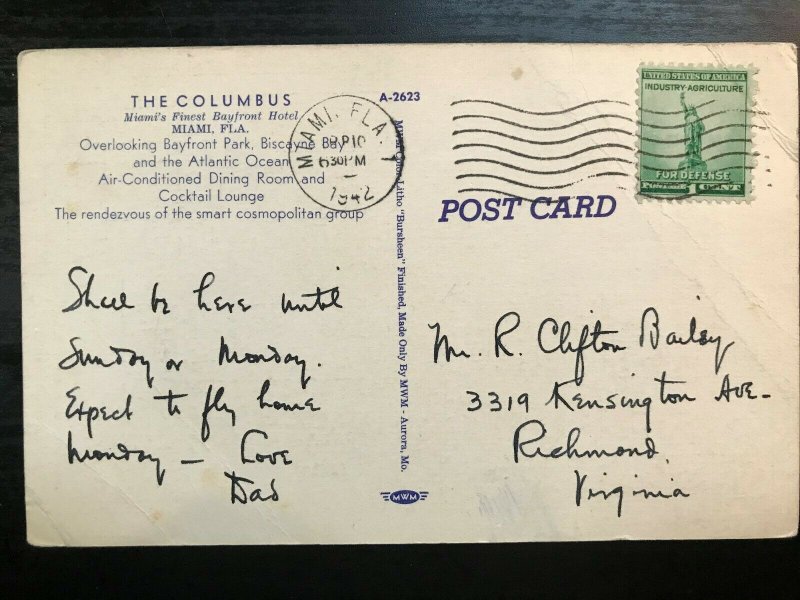 THE COLUMBUS
Miami's Finest Bayfront Hotel
MIAMI, FLA.
Overlooking Bayfront Park, Biscayne Bay
and the Atlantic Ocean
Air-Conditioned Dining Room and
Cocktail Lounge
The rendezvous of the smart cosmopolitan group
Shall be here until
Sunday or Monday.
Expect to fly home
Monday — Love
Dad
MIAMI, FLA.
630 PM
1942
A-2623
MWM Color-Litho "Bursheen" Finished, Made Only By MWM - Aurora, Mo.
MWM
UNITED STATES OF AMERICA
INDUSTRY-AGRICULTURE
FOR DEFENSE
1 CENT
POST CARD
Mr. R. Clifton Bailey
3319 Kensington Ave-
Richmond,
Virginia